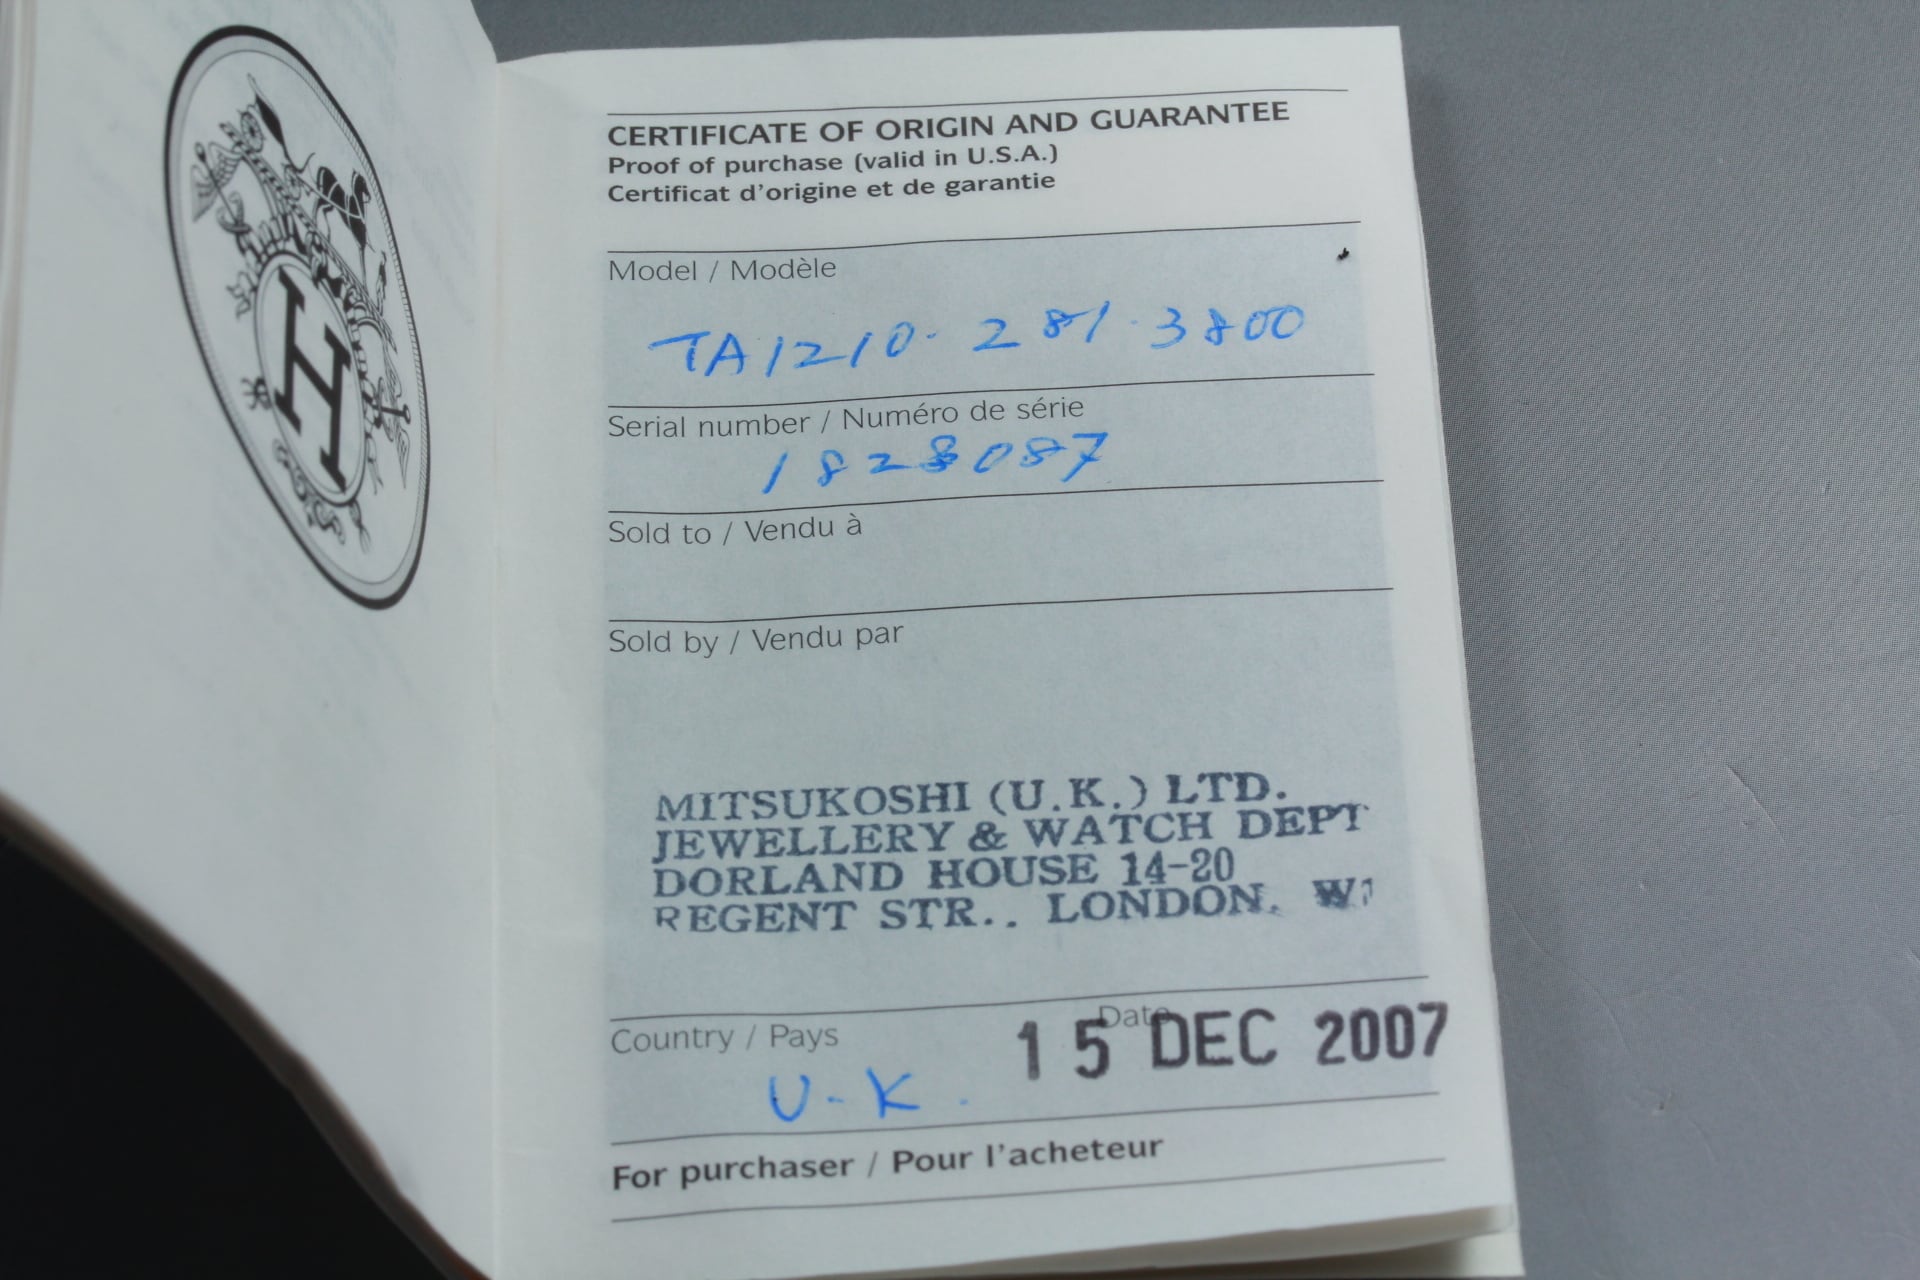 H
CERTIFICATE OF ORIGIN AND GUARANTEE
Proof of purchase (valid in U.S.A.)
Certificat d'origine et de garantie
Model / Modèle
TA1210. 281.3800
Serial number / Numéro de série
1828087
Sold to / Vendu à
Sold by / Vendu par
MITSUKOSHI (U.K.) LTD.
JEWELLERY & WATCH DEPT
DORLAND HOUSE 14-20
REGENT STR.. LONDON. W1
Country / Pays
Date
15 DEC 2007
U.K.
For purchaser / Pour l'acheteur